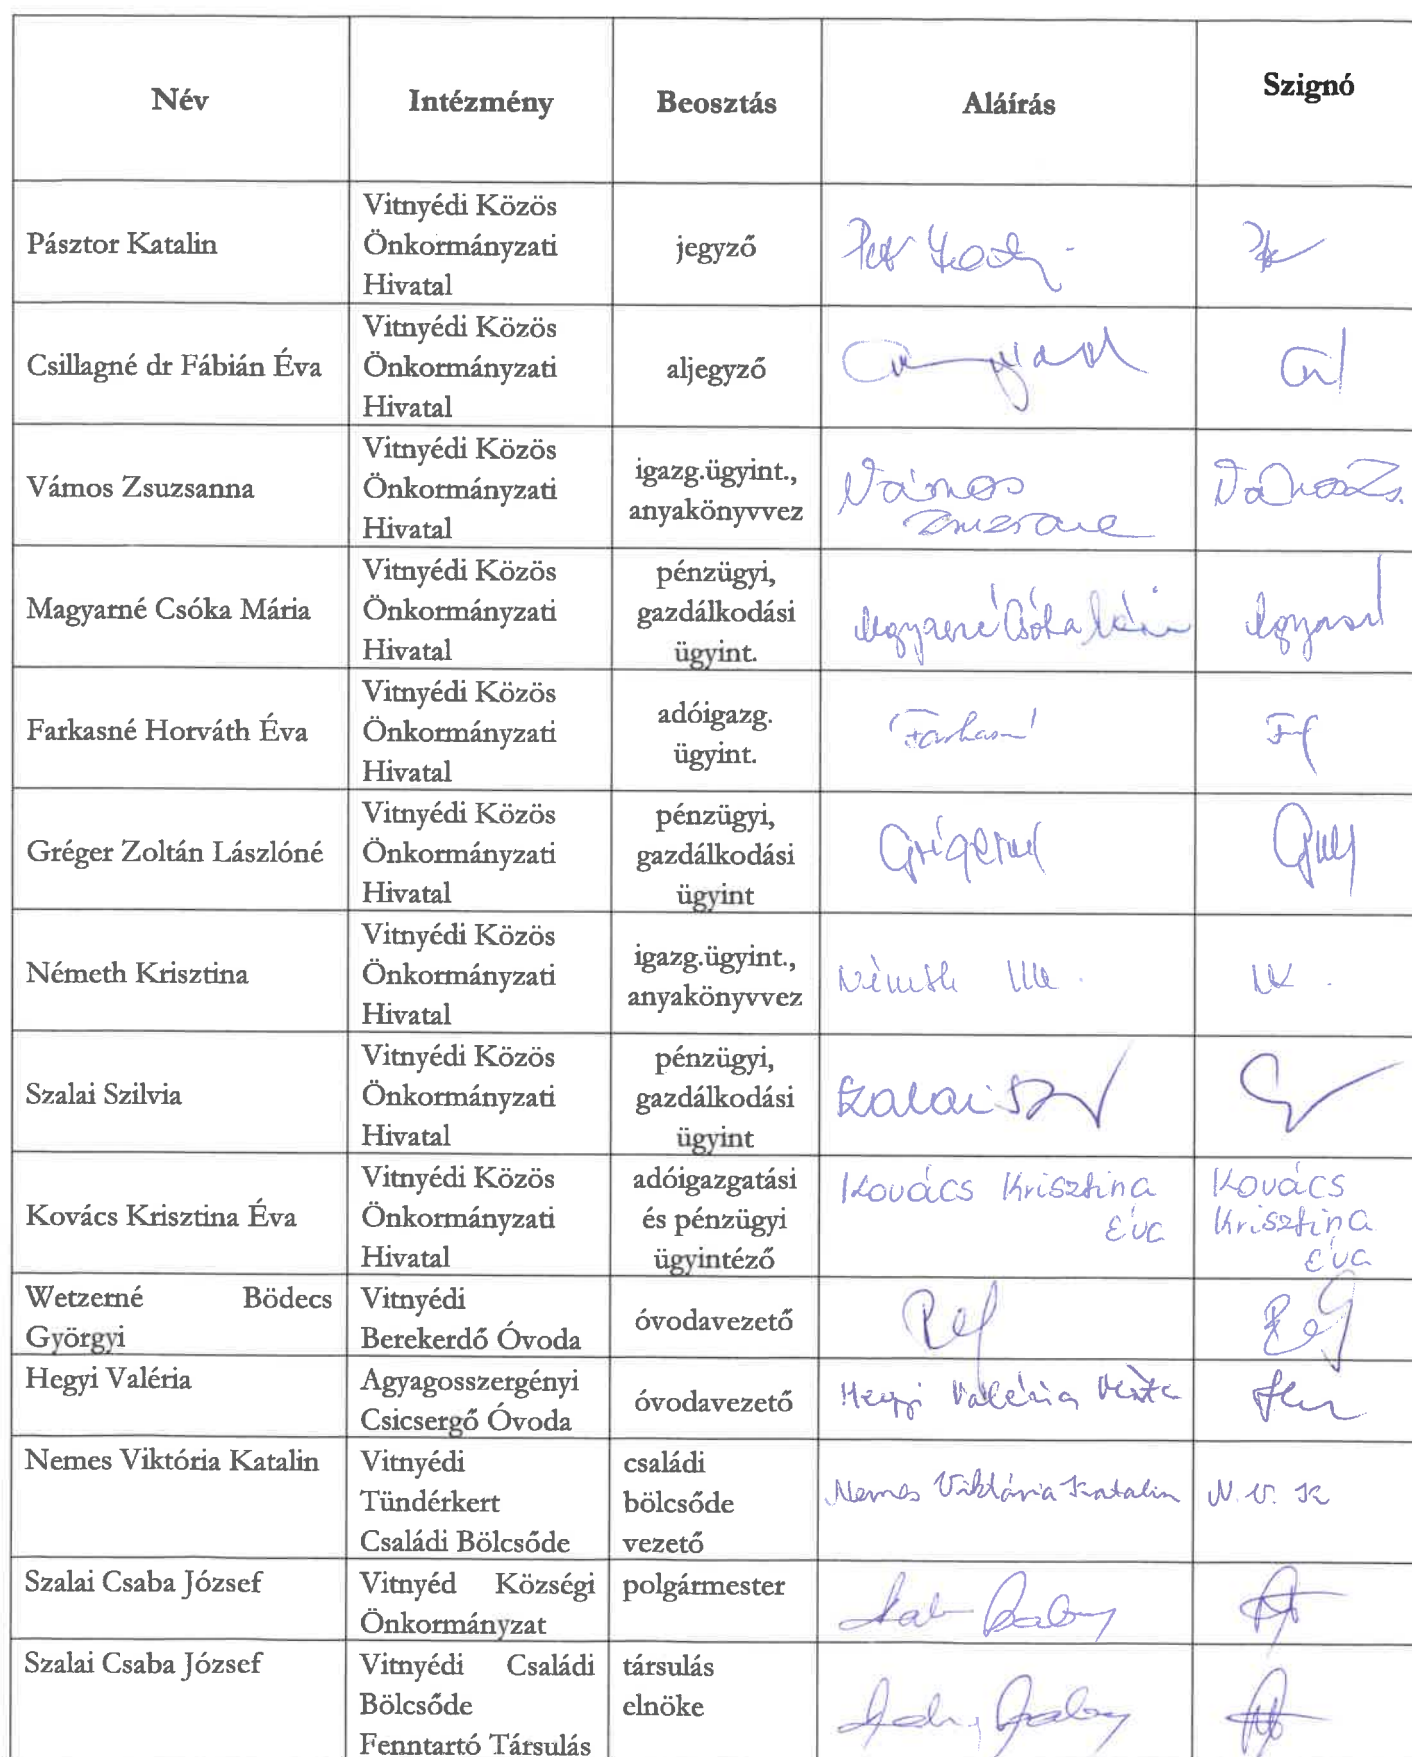 Név Intézmény Beosztás Aláírás Szignó
Pásztor Katalin
Vitnyédi Közös
Önkormányzati
Hivatal
jegyző
Csillagné dr Fábián Éva
Vitnyédi Közös
Önkormányzati
Hivatal
aljegyző
Vámos Zsuzsanna
Vitnyédi Közös
Önkormányzati
Hivatal
igazg.ügyint.,
anyakönyvvez
Vámos
Magyarné Csóka Mária
Vitnyédi Közös
Önkormányzati
Hivatal
pénzügyi,
gazdálkodási
ügyint.
Magyarné Csóka Mária
Farkasné Horváth Éva
Vitnyédi Közös
Önkormányzati
Hivatal
adóigazg.
ügyint.
Farkasné
Gréger Zoltán Lászlóné
Vitnyédi Közös
Önkormányzati
Hivatal
pénzügyi,
gazdálkodási
ügyint
Németh Krisztina
Vitnyédi Közös
Önkormányzati
Hivatal
igazg.ügyint.,
anyakönyvvez
Németh
Szalai Szilvia
Vitnyédi Közös
Önkormányzati
Hivatal
pénzügyi,
gazdálkodási
ügyint
Szalai
Kovács Krisztina Éva
Vitnyédi Közös
Önkormányzati
Hivatal
adóigazgatási
és pénzügyi
ügyintéző
Kovács Krisztina
Éva
Kovács
Krisztina
Éva
Wetzerné Bödecs
Györgyi
Vitnyédi
Berekerdő Óvoda
óvodavezető
Hegyi Valéria
Agyagosszergényi
Csicsergő Óvoda
óvodavezető
Hegyi Valéria
Nemes Viktória Katalin
Vitnyédi
Tündérkert
Családi Bölcsőde
családi
bölcsőde
vezető
Nemes Viktória Katalin
N. V. K
Szalai Csaba József
Vitnyéd Községi
Önkormányzat
polgármester
Szalai Csaba József
Vitnyédi Családi
Bölcsőde
Fenntartó Társulás
társulás
elnöke